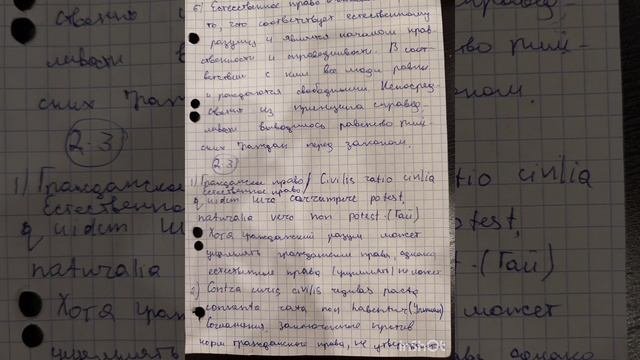 б) Естественное право
то, что соответствует естественному
разуму и является началом нрав-
ственности и справедливости. В соот-
ветствии с ним все люди равны
и рождаются свободными. Непосред-
ственно из принципа справед-
ливости выводилось равенство рим-
ских граждан перед законом.
2.3
1) Гражданское право / Civilis ratio civilia
естественное право
q uidem iura corrumpere potest,
naturalia vero non potest. (Гай)
Хотя гражданский разум может
ущемлять гражданские права, однако
естественные права (ущемлять) не может
2) Contra iuris civilis regulas pacta
conventa rata non habentur (Ульпиан)
Соглашения, заключенные против
норм гражданского права, не